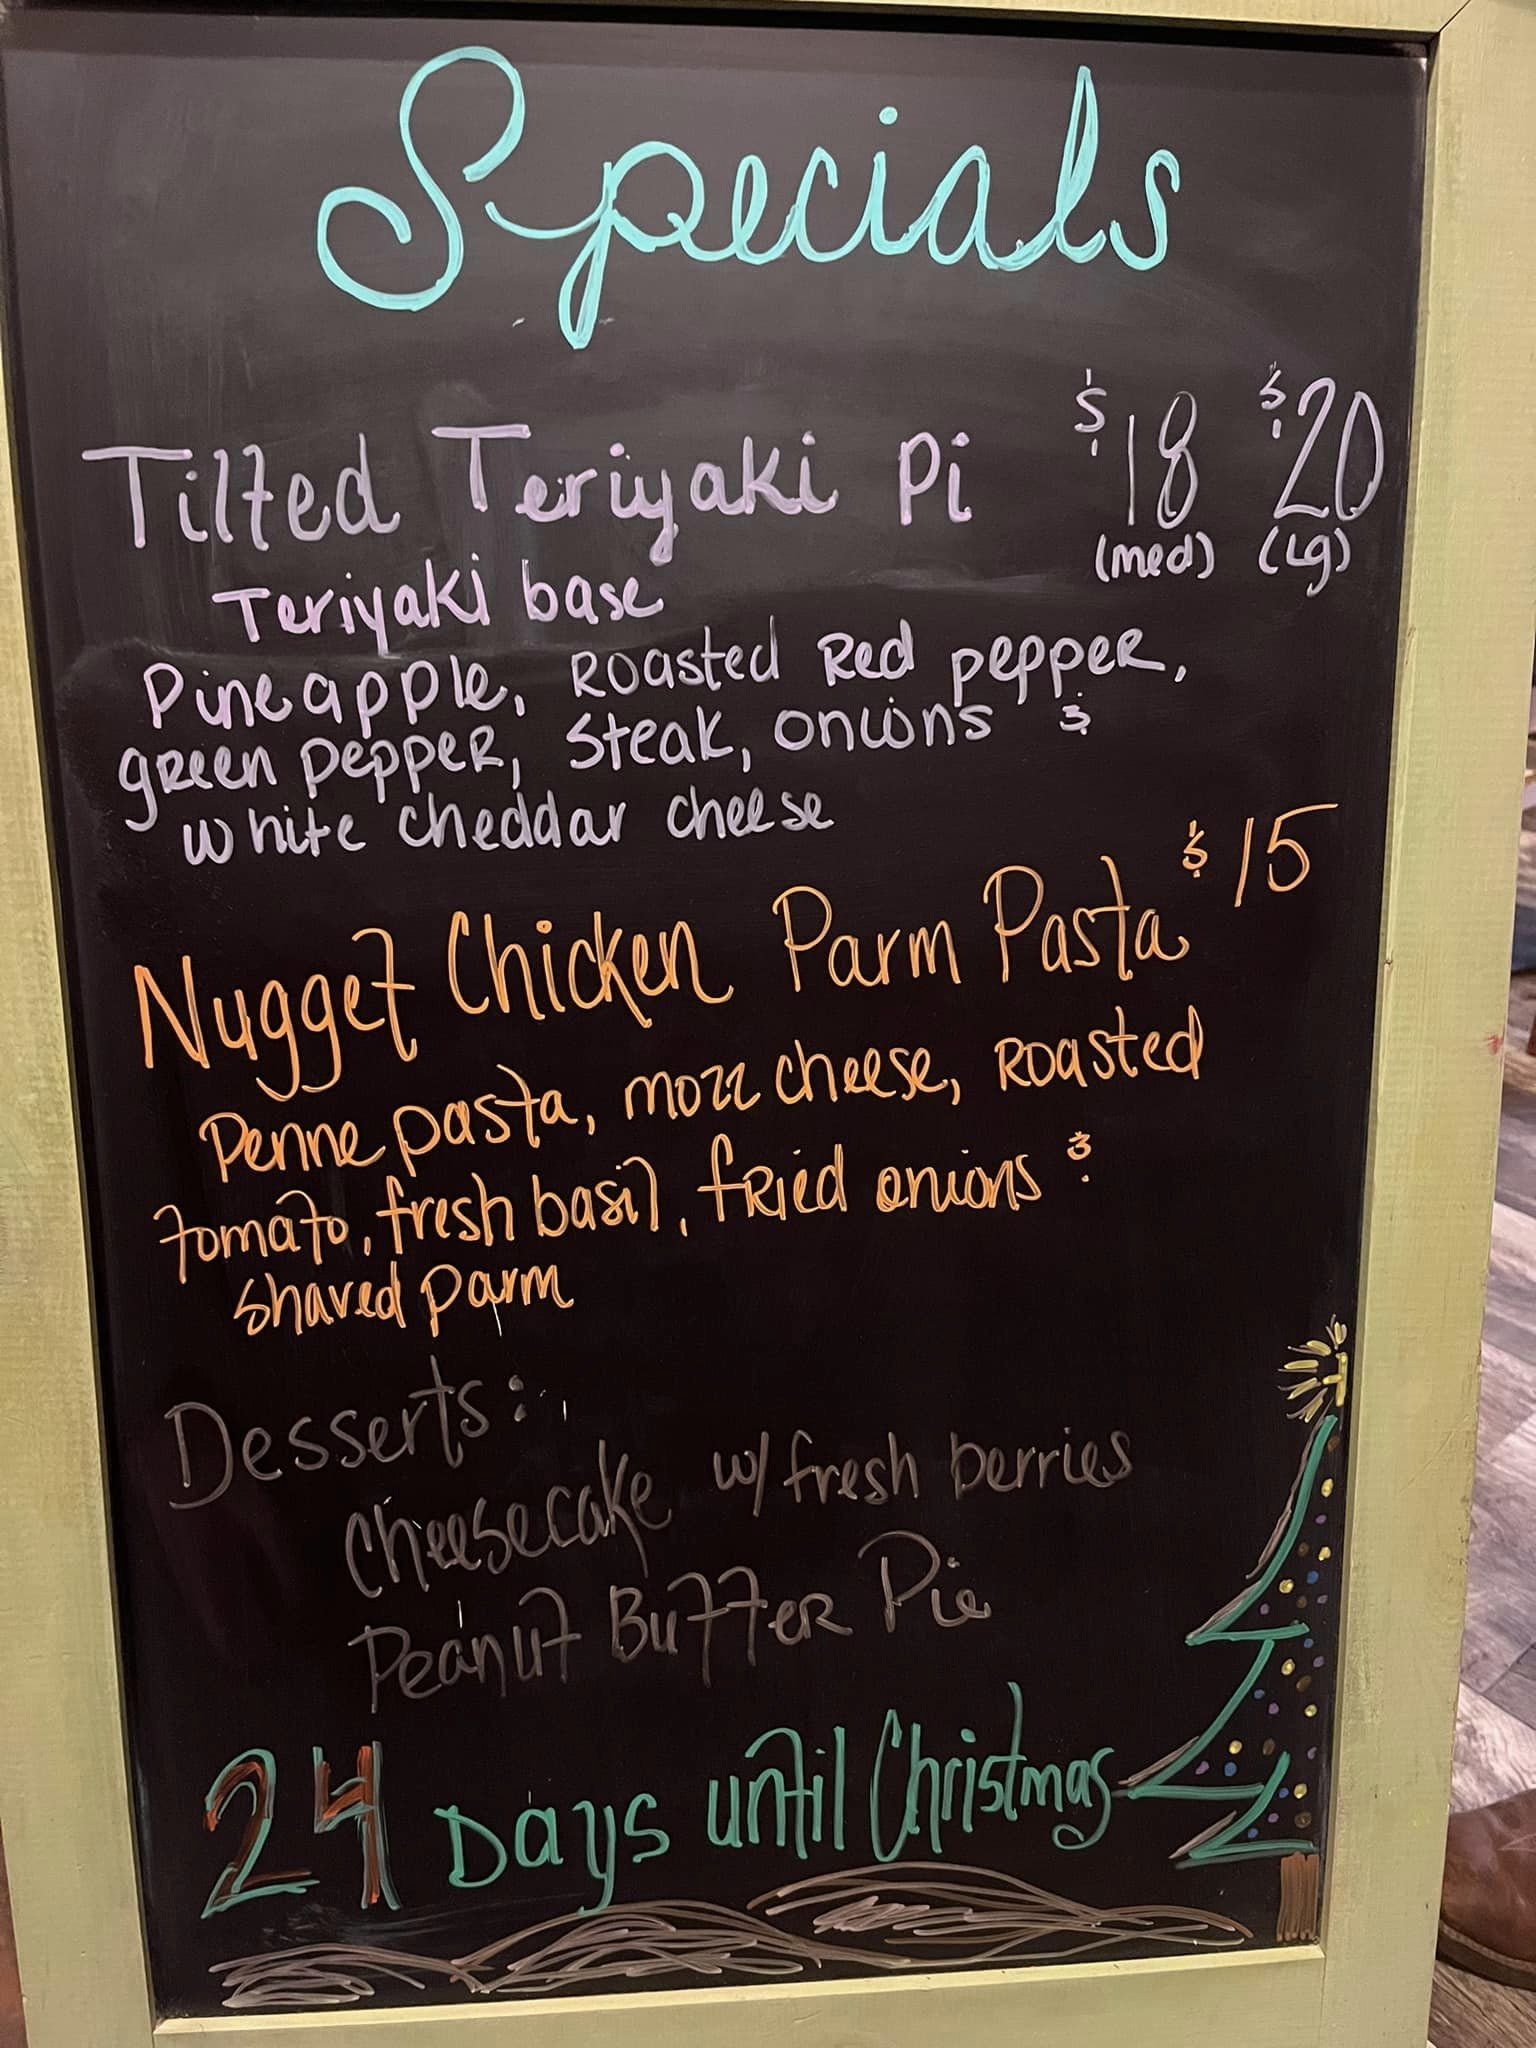 Specials
Tilted Teriyaki Pi $18 $20
(med) (Lg)
Teriyaki base
Pineapple, Roasted Red pepper,
green pepper, steak, onions &
white cheddar cheese
Nugget Chicken Parm Pasta $15
Penne pasta, mozz cheese, roasted
tomato, fresh basil, fried onions &
shaved parm
Desserts:
Cheesecake w/ fresh berries
Peanut Butter Pie
24 Days until Christmas